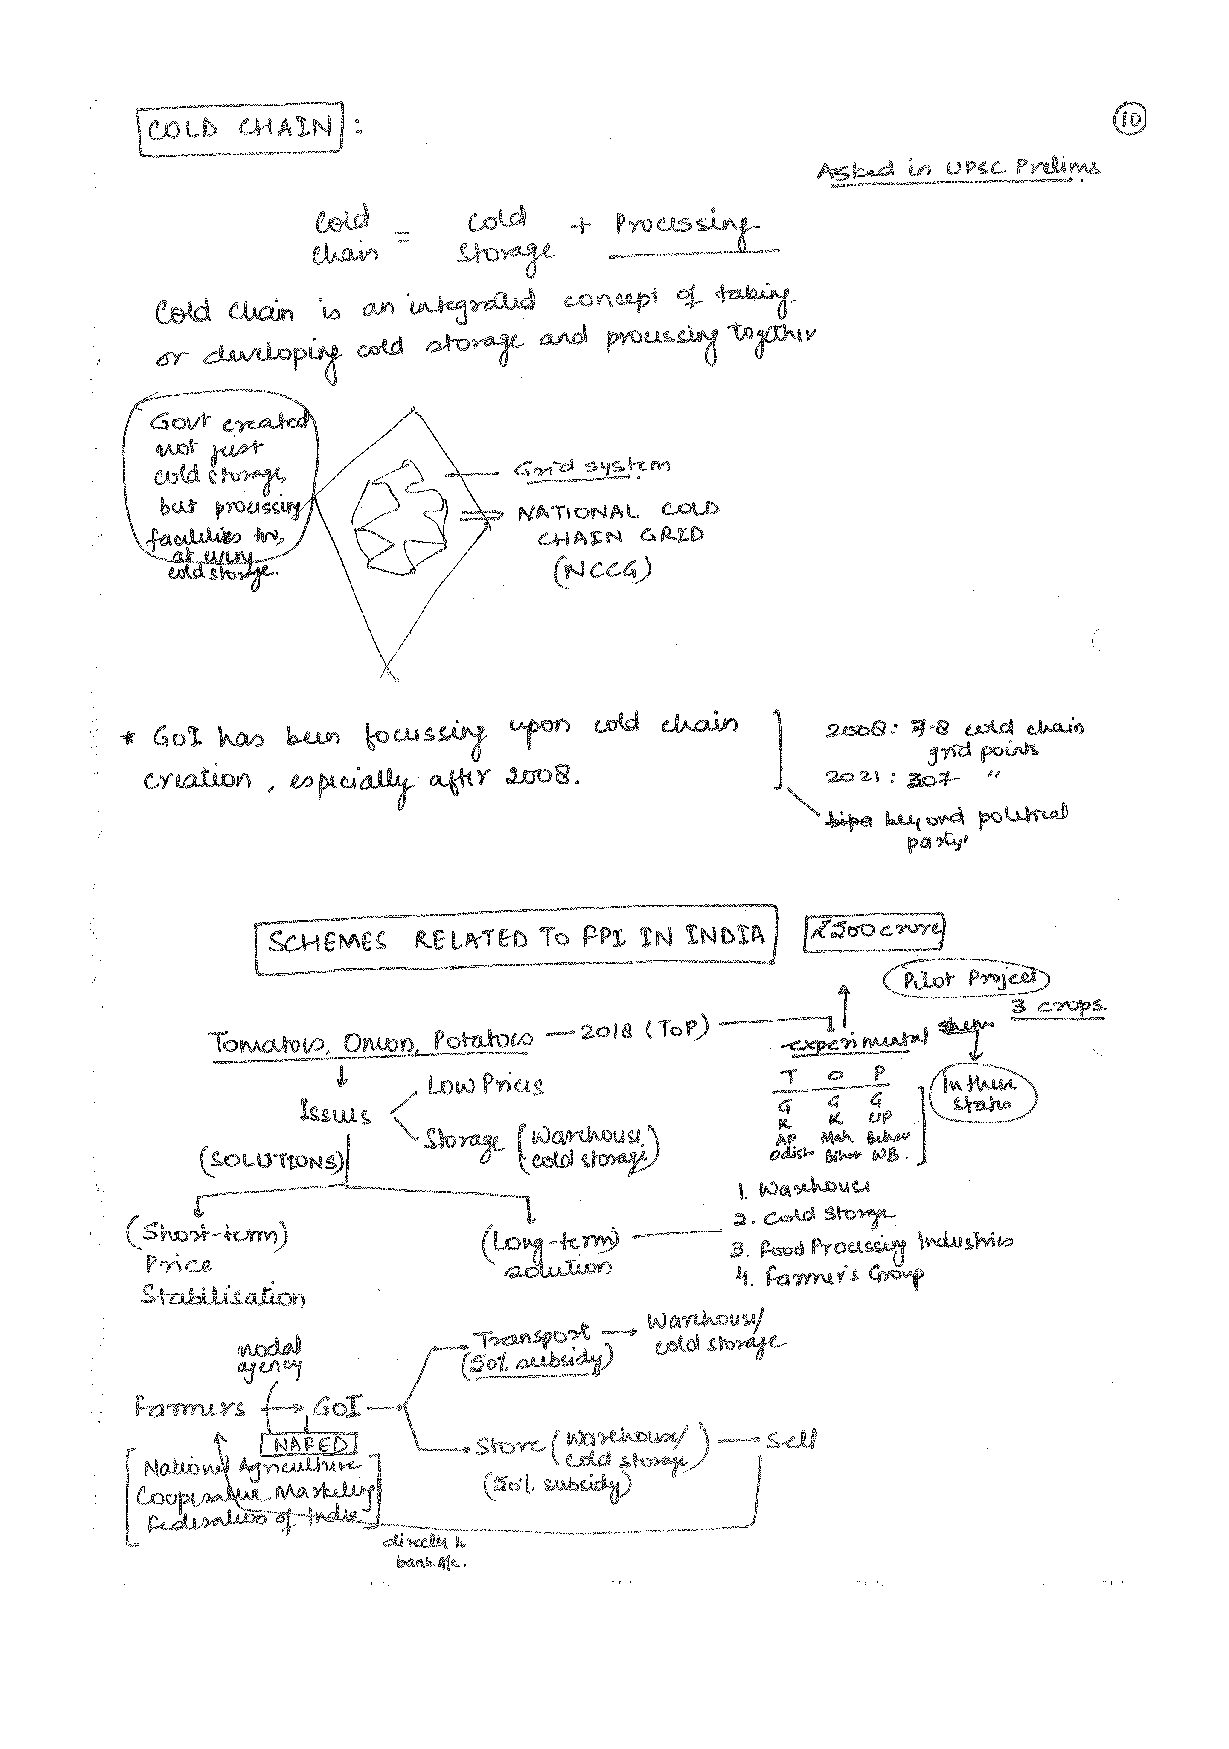 10
COLD CHAIN :
Asked in UPSC Prelims
Cold chain = Cold storage + Processing
Cold chain is an integrated concept of taking
or developing cold storage and processing together
Govt created
not just
cold storage
but processing
facilities
at every
cold storage.
Grid system
NATIONAL COLD
CHAIN GRID
(NCCG)
* GoI has been focussing upon cold chain
creation, especially after 2008.
2008: 7-8 cold chain
grid points
2021: 307 "
beyond political
party
SCHEMES RELATED TO FPI IN INDIA
₹500 crore
Pilot Project
3 crops.
Tomatoes, Onion, Potatoes — 2018 (ToP)
experimental
In these
states
T O P
G G G
K K UP
AP Mah Bihar
Odish Bihar WB.
Issues
Low Prices
Storage (Warehouse/
cold storage)
(SOLUTIONS)
(Short-term)
Price
Stabilisation
(Long-term)
solution
1. Warehouse
2. Cold Storage
3. Food Processing Industries
4. Farmer's Group
nodal
agency
Farmers → GoI
NAFED
[National Agriculture
Cooperative Marketing
Federation of India]
Transport → Warehouse/
cold storage
(50% subsidy)
Store (Warehouse/
cold storage) → Sell
(50% subsidy)
directly to
bank a/c.